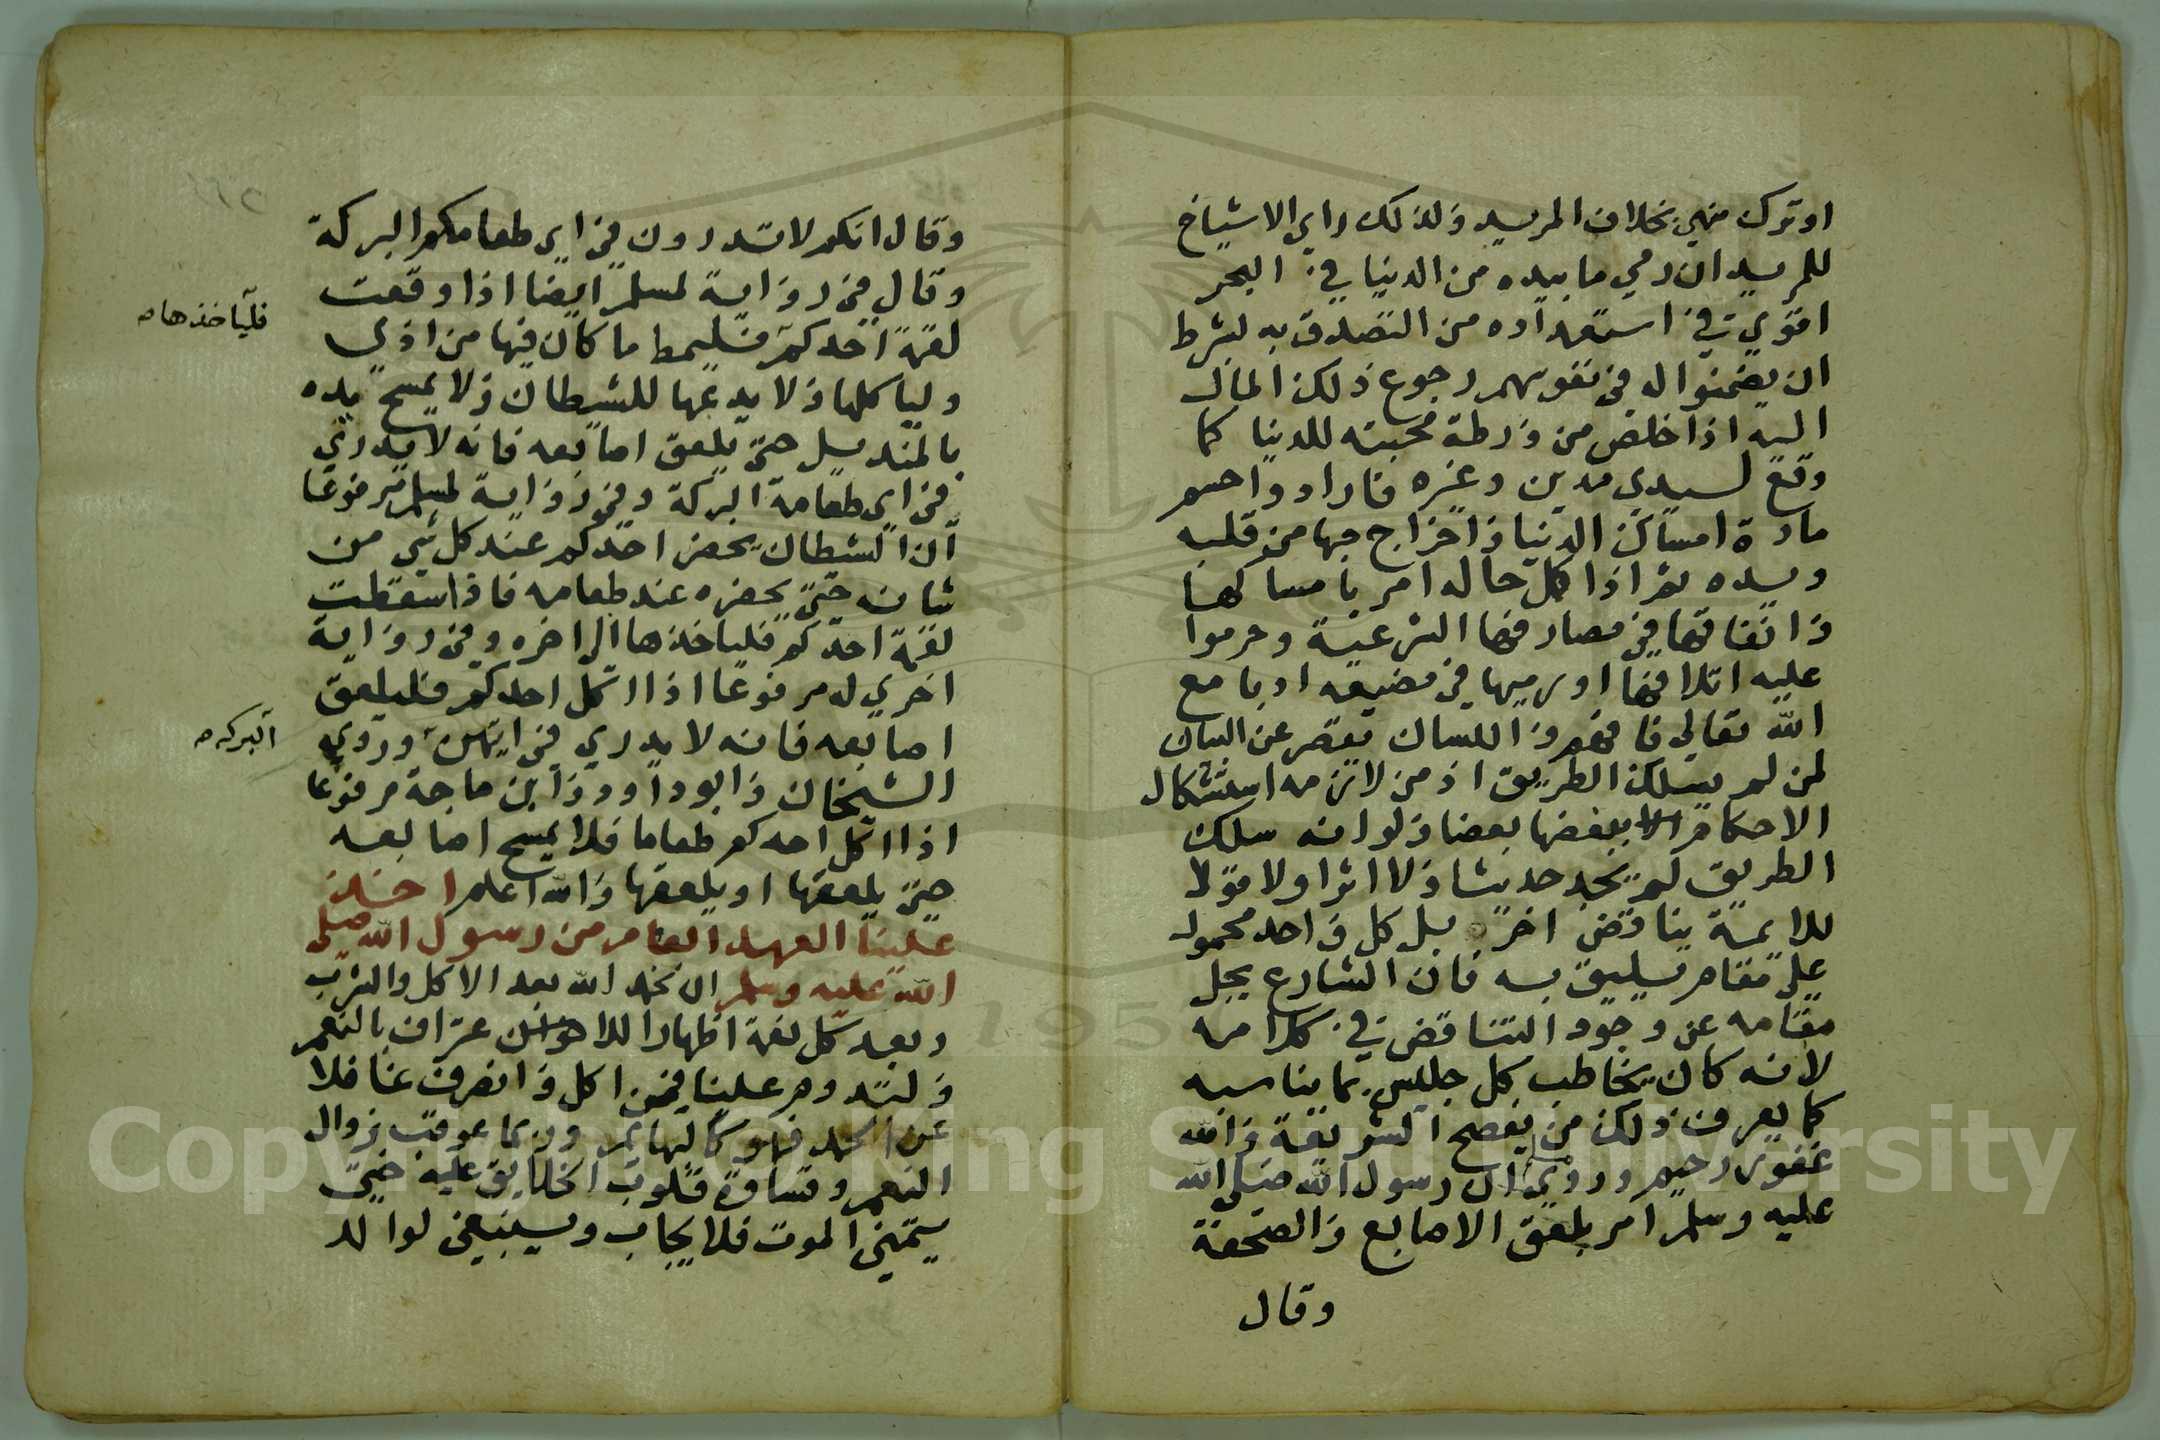 او ترك منهي بخلاف المريد ولذلك راي الاشياخ
للمريد ان رمي ما بيده من الدنيا في البحر
اقوي في استعداده من التصدق به لشرط
ان يضمنوا له في نفوسهم رجوع ذلك المال
اليه اذا خلص من ورطة محبته للدنيا كما
وقع لسيدي مدين وغيره فارادوا حسم
مادة امساك الدنيا واخراج حبها من قلبه
ويده ثم اذا كمل حاله امر بامساكها
وانفاقها في مصارفها الشرعية وحرموا
عليه اتلافها او رميها في مضيعه ادبا مع
الله تعالي فافهم واللسان تقصر عن البيان
لمن لم يسلك الطريق اذ من لازمه استشكال
الاحكام ببعضها بعضا ولو انه سلك
الطريق لم يجد حديثا ولا اثرا ولا قولا
للايمة يناقض اخر بل كل واحد محمول
علي مقام يليق به فان الشارع يجل
مقامه عن وجود التناقض في كلامه
لانه كان يخاطب كل جليس بما يناسبه
كما يعرف ذلك من يفصح الشريعة والله
غفور رحيم وروي ان رسول الله صلي الله
عليه وسلم امر بلعق الاصابع والصحفة
وقال
وقال انكم لا تدرون في اي طعامكم البركة
وقال في رواية لمسلم ايضا اذا وقعت
لقمة احدكم فليمط ما كان فيها من اذي
فليأخذها
ولياكلها ولا يدعها للشيطان ولا يمسح يده
بالمنديل حتي يلعق اصابعه فانه لا يدري
في اي طعامه البركة وفي رواية لمسلم مرفوعا
ان الشيطان يحضر احدكم عند كل شي من
شانه حتي يحضره عند طعامه فاذا سقطت
لقمة احدكم فلياخذها الي اخره وفي رواية
اخري له مرفوعا اذا اكل احدكم فليلعق
اصابعه فانه لا يدري في ايتهن وروي
البركه
الشيخان وابو داود وابن ماجة مرفوعا
اذا اكل احدكم طعاما فلا يمسح اصابعه
حتي يلعقها او يلعقها والله اعلم اخذ
علينا العهد العام من رسول الله صلي
الله عليه وسلم ان نحمد الله بعد الاكل والشرب
وبعد كل لقمة اظهارا للاعتراف بالنعم
ولتدوم علينا فمن اكل وانصرف غافلا
عن الحمد فهو كالبهايم وربما عوقب بزوال
النعم وقساوة قلوب الخلايق عليه حتي
يتمني الموت فلا يجاب وينبغي لوالد
Copyright © King Saud University
1957